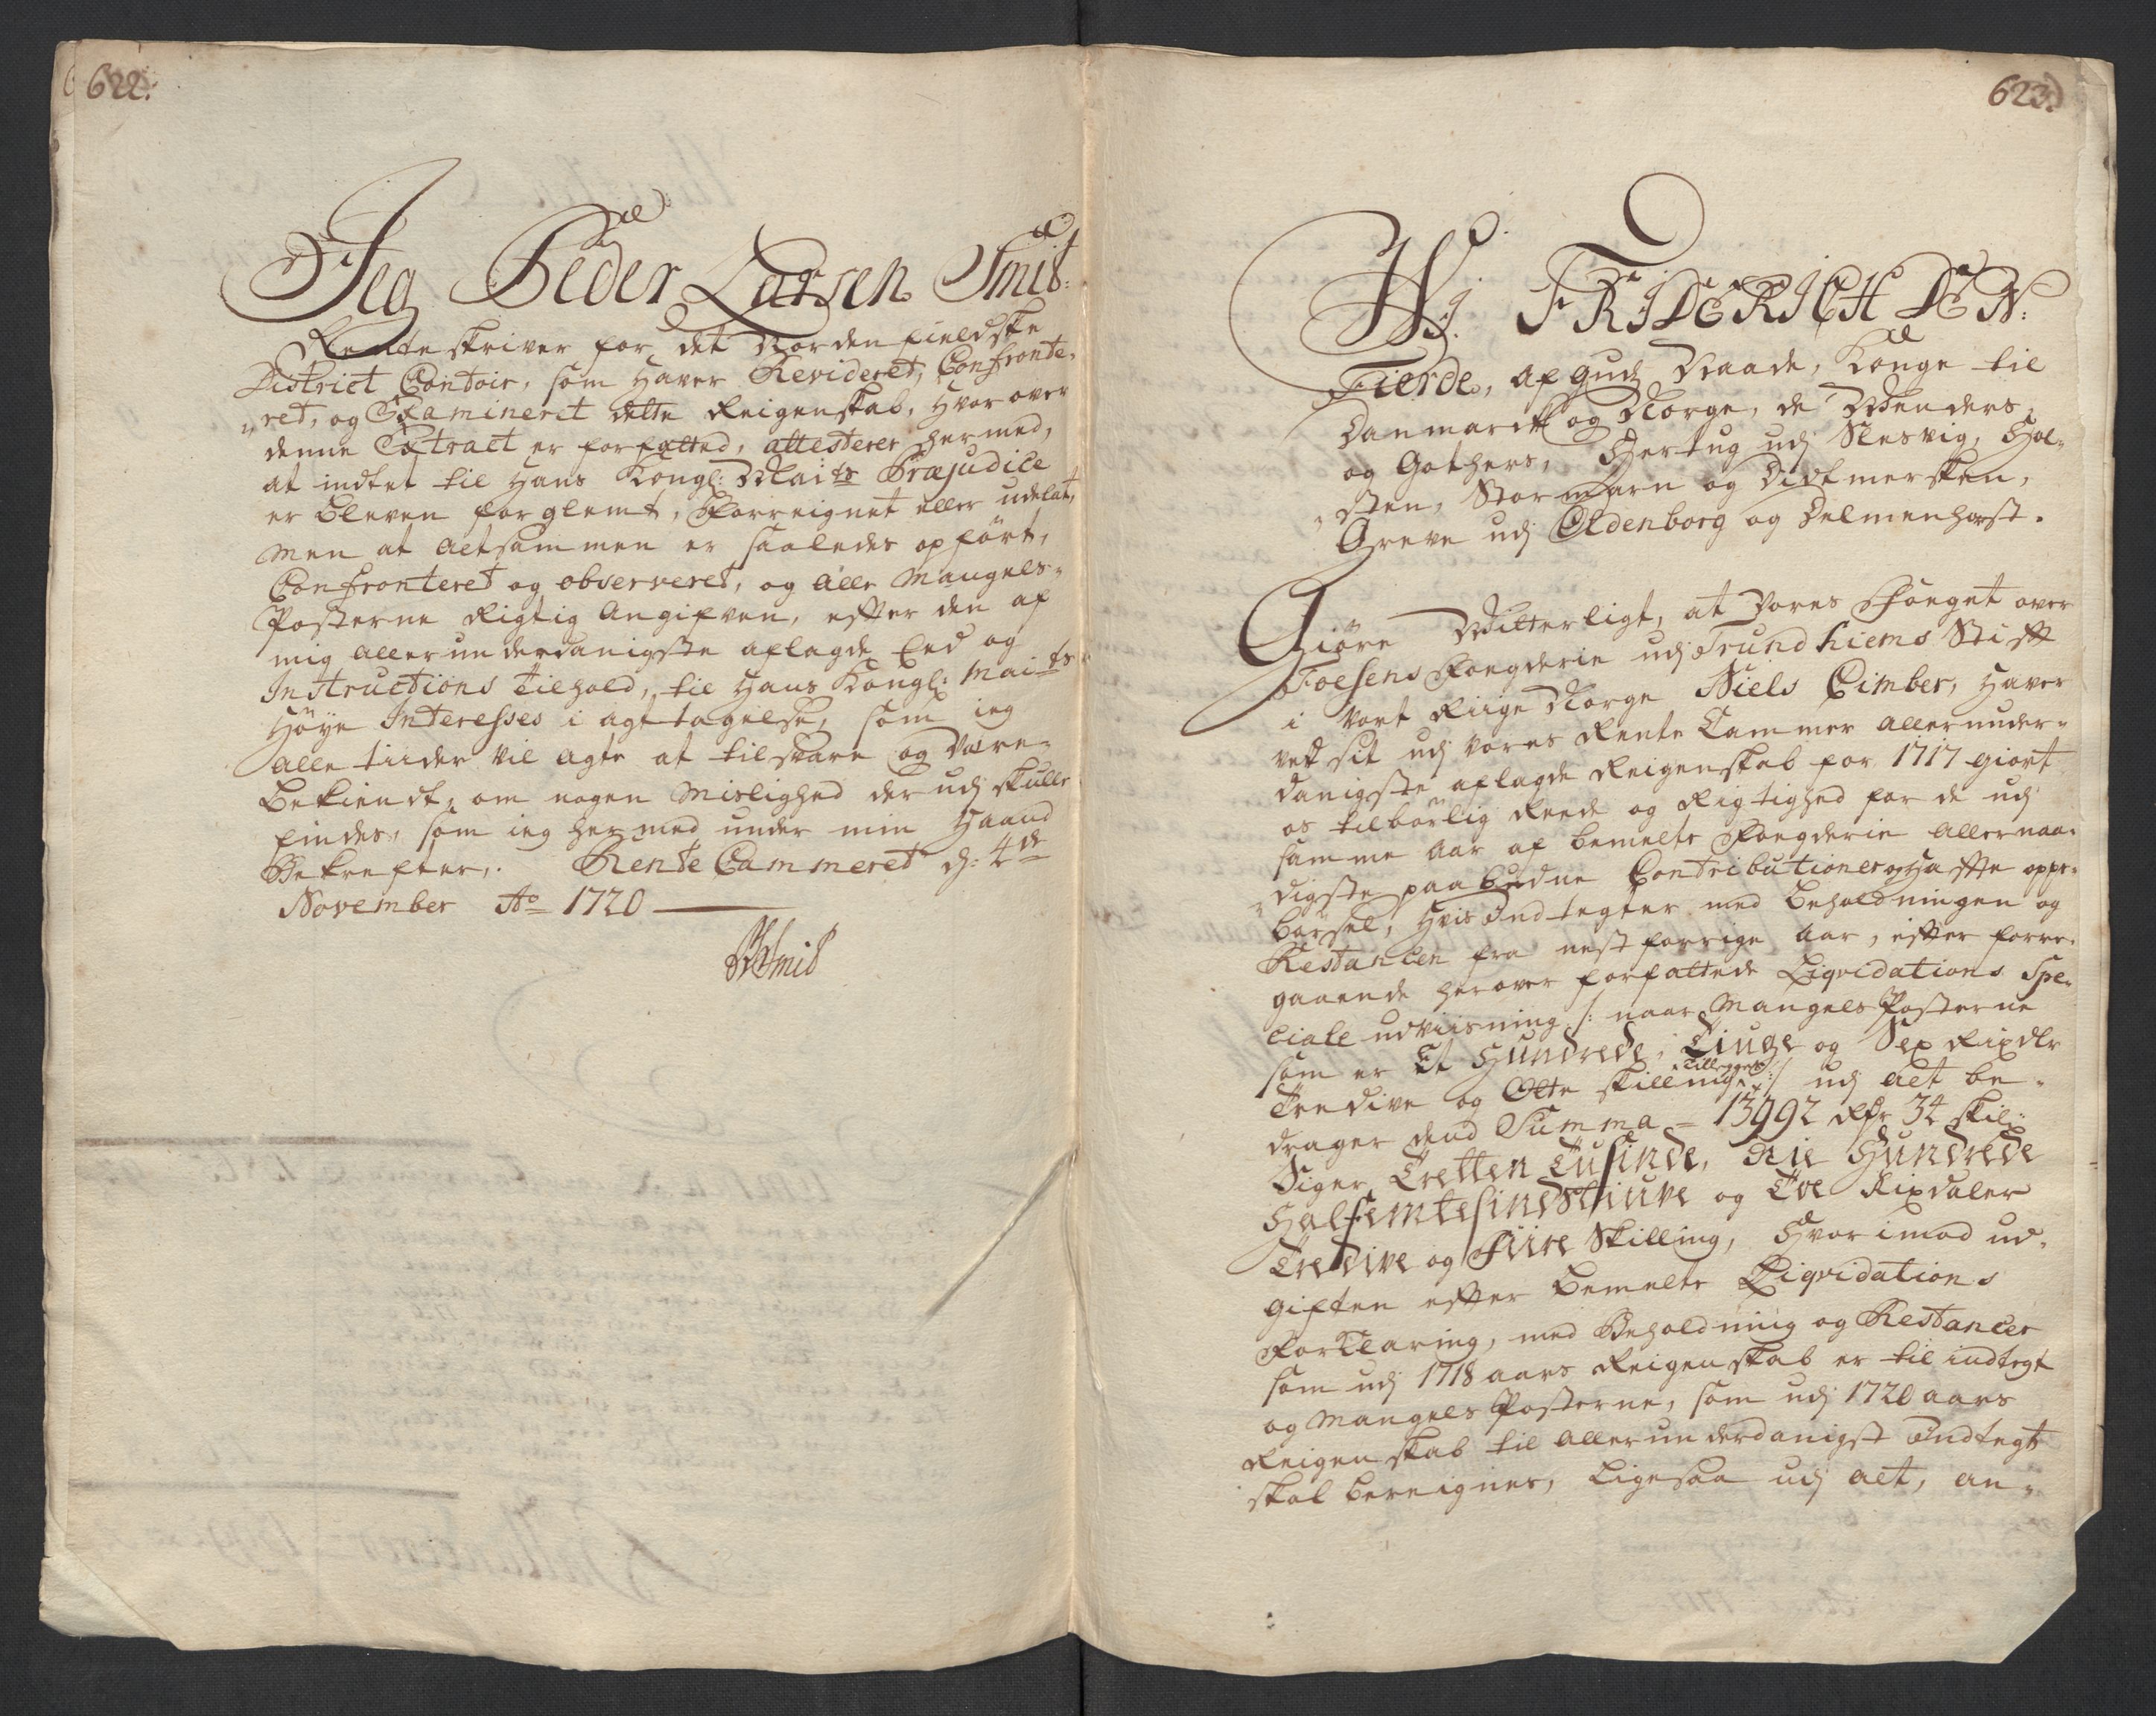 622.
Jeg Peder Larsen Smit:
Renteskriver for det Nordenfieldske
District Contoir, som haver Revideret, Confronte-
"ret, og Examineret dette Reigenskab, hvorover
denne Extract er forfatted, attesterer hermed,
at indtet til Hans Kongl: Mai:ts Præjudice
er bleven forglemt, Forreignet eller udelat,
men at altsammen er saaledes opført,
Confronteret og observeret, og alle Mangels-
Posterne Rigtig Angifven, efter den af
mig allerunderdanigste aflagde Eed og
Instructions tilhold, til Hans Kongl: Mai:ts
Høye Interesses i agttagelse, som ieg
alle tiider vil agte at tilsvare og være
bekiendt, om nogen Mislighed der udj skulle
findes, som ieg hermed under min Haand
Bekrefter,. Rente Cammeret d: 4de
November Ao 1720
PLSmit
623.
WJ. FRIDERICH DEN:
Fierde, af Guds Naade, Konge til
Danmarck og Norge, de Wenders
og Gothers, Hertug udj Slesvig, Hol-
"sten, Stormarn og Didtmersken,
Greve udj Oldenborg og Delmenhorst.
Giøre Witterligt, at Vores Foeget over
Foesens Foegderie udj Trundhiems Stift
i vort Riige Norge Niels Cimber, haver
ved sit udj Vores Rente Cammer allerunder-
danigste aflagde Reigenskab for 1717 giort
os tilbørlig Reede og Rigtighed for de udj
samme Aar af bemelte Foegderie allernaa-
"digste paabudne Contributioner og Haffte oppe-
børsel, hvis Indtegter med beholdningen og
Restancen fra nest forrige Aar, efter forre-
gaaende herover forfattede Liqvidations Spe-
ciale udviisning /: naar Mangels Posterne
som er Et Hundrede, Tiuge og Sex Rixdlr
Tredive og Otte skilling tillegges :/ udj alt be-
drager dend Summa = 13992 Rdr 34 skil:
Siger Tretten Tusinde, Nie Hundrede
Halfemtesindstiuve og Toe Rixdaler
Tredive og Fiire Skilling, Hvorimod ud-
giften efter bemelte Liqvidations
Forklaring, med Beholdning og Restancer
som udj 1718 aars Reigenskab er til indtegt
og Mangels Posterne, som udj 1720 aars
Reigenskab til allerunderdanigst Indtegt
skal bereignes, ligesaa udj alt, an-